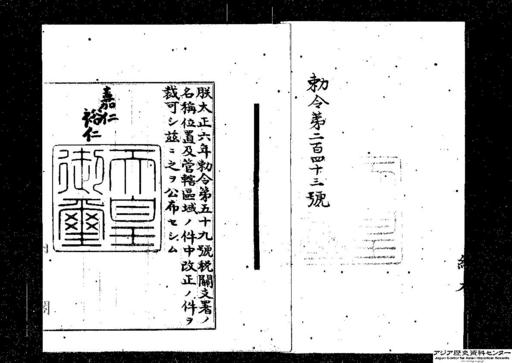 勅令第二百四十三號
朕大正六年勅令第五十九號税關支署ノ
名稱位置及管轄區域ノ件中改正ノ件ヲ
裁可シ茲ニ之ヲ公布セシム
嘉仁
裕仁
天皇
御璽
アジア歴史資料センター
Japan Center for Asian Historical Records